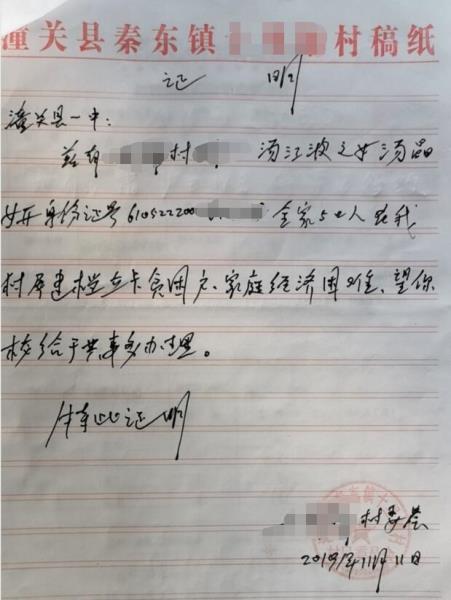 潼关县秦东镇村稿纸
证 明
潼关县一中：
兹有 村 汤江波之女汤晶
女身份证号610522200 全家5口人 在我
村属建档立卡贫困户、家庭经济困难、望你
校给于其事务办理。
特此证明
村委会
2019年11月11日